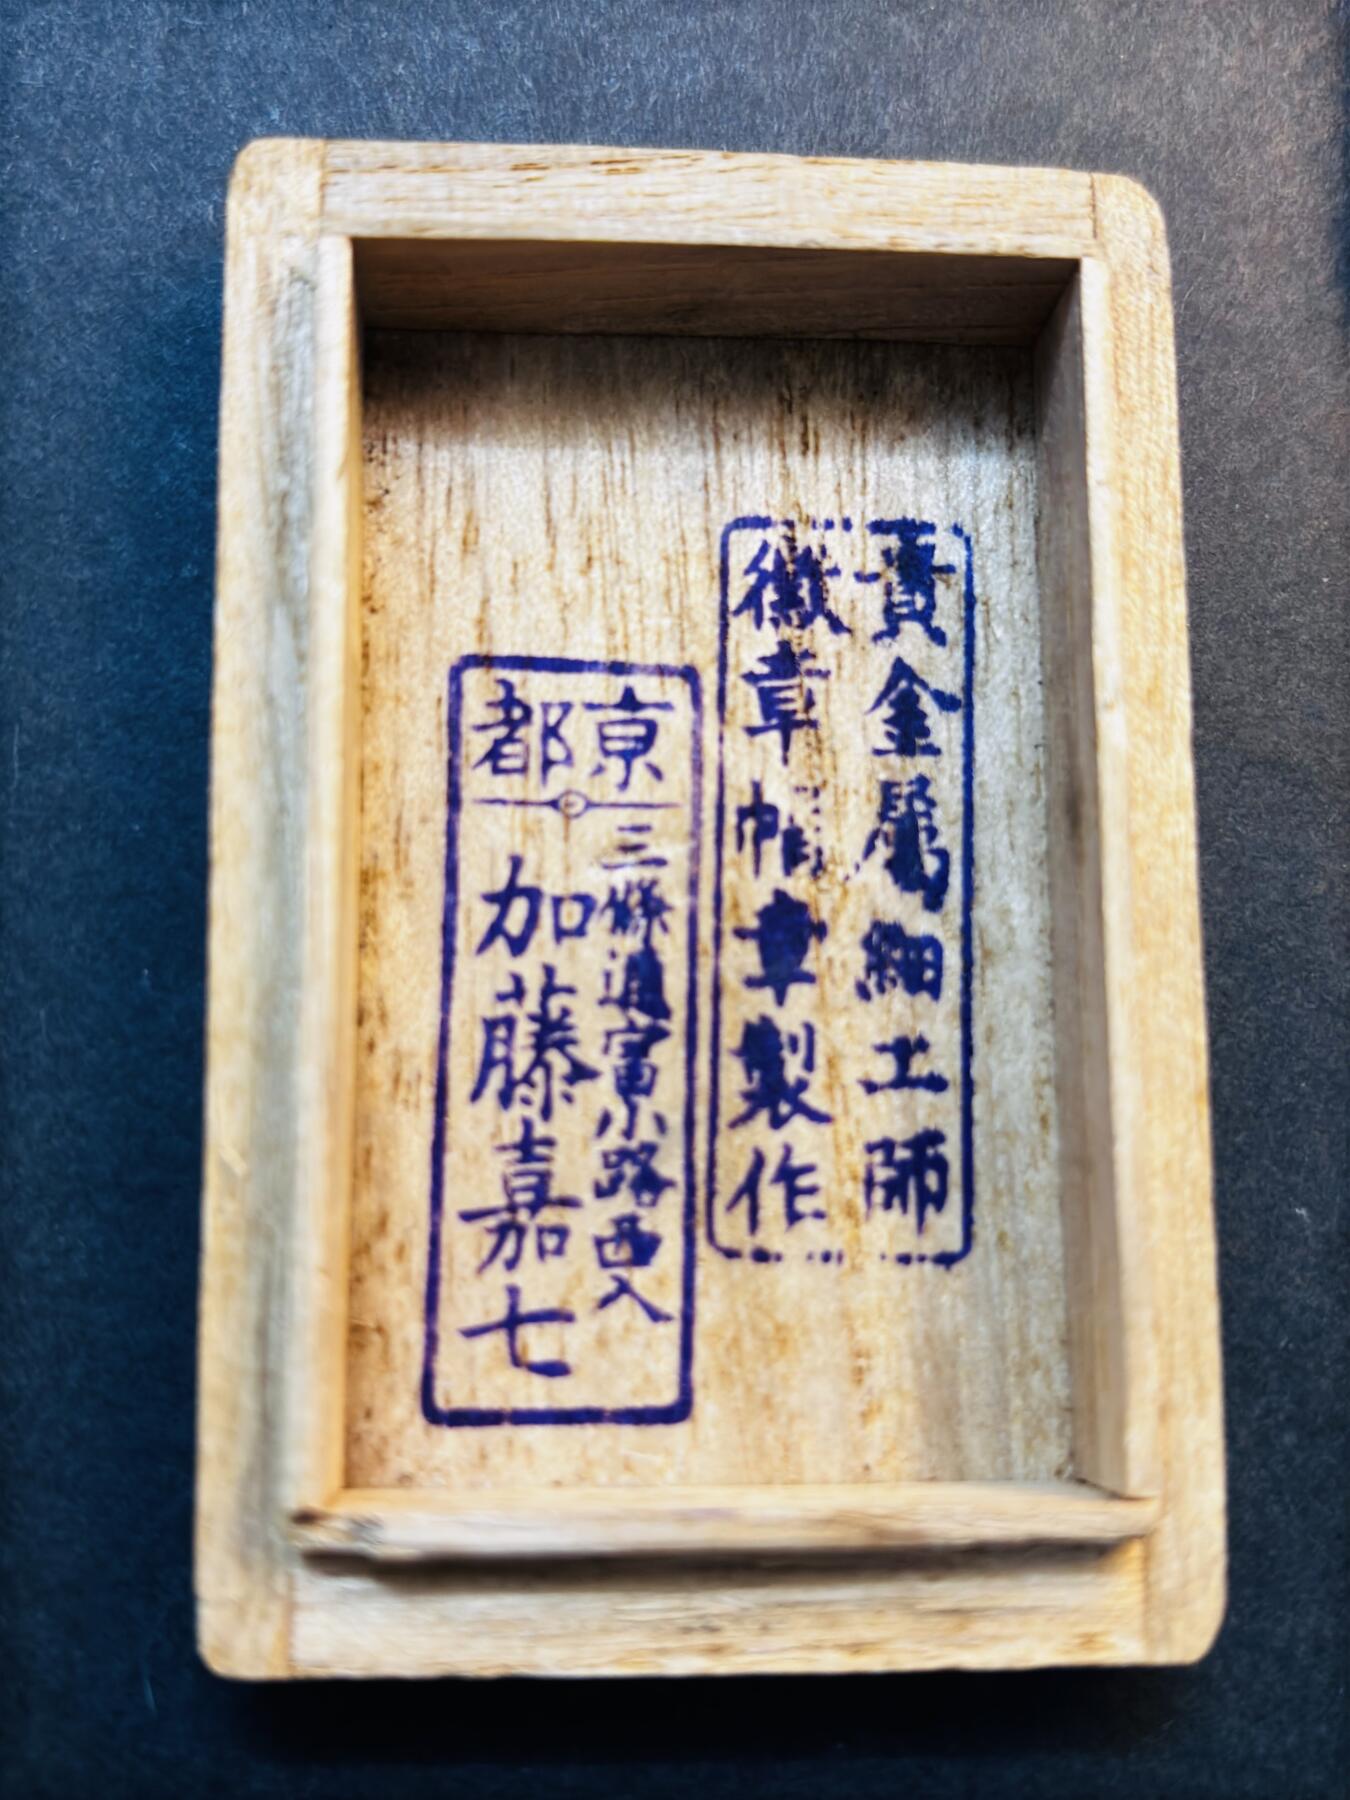 貴金属細工師
徽章帽章製作
京都
三條通富小路西入
加藤嘉七